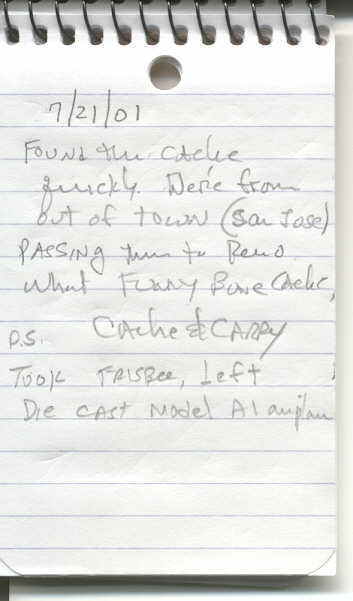 7/21/01
Found the cache
quickly. We're from
out of town (San Jose)
PASSING thru to Reno.
What Funny Bone Cache,
Cache & CARRY
P.S.
TOOK FRISBEE, Left
Die CAST Model A1 airplane